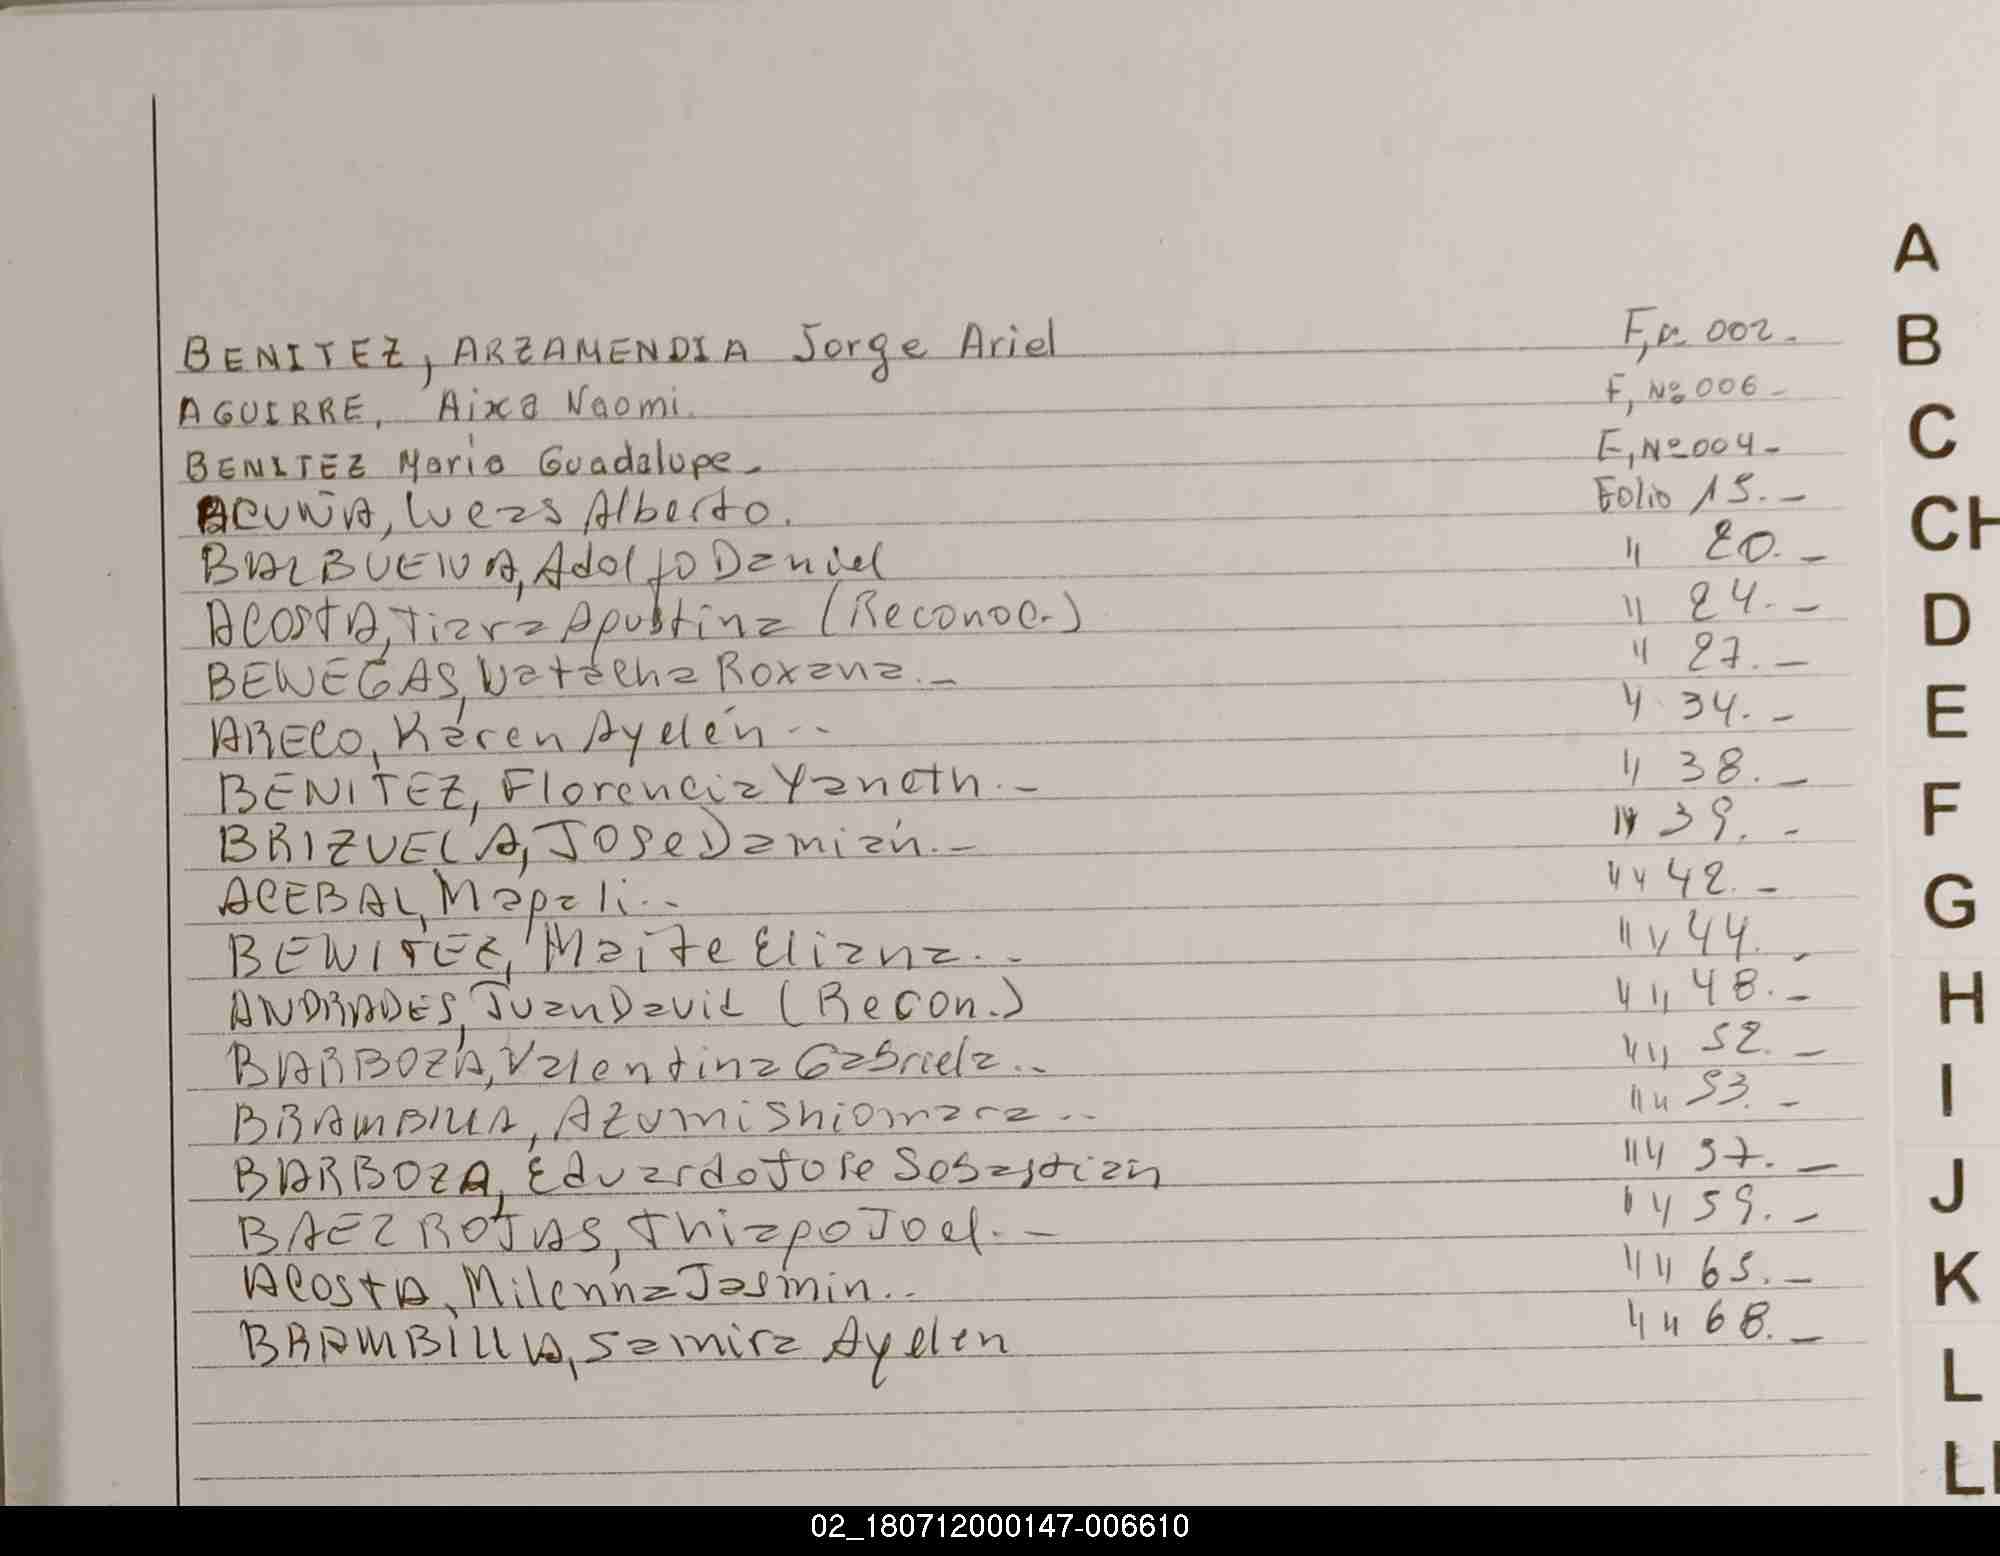 BENITEZ, ARZAMENDIA Jorge Ariel F, n 002.-
AGUIRRE, Aixa Naomi. F, Nº 006-
BENITEZ Maria Guadalupe.- F, Nº 004-
ACUÑA, Lucas Alberto. Folio 15.-
BALBUENA, Adolfo Daniel " 20.-
ACOSTA, Tiara Agustina (Reconoc.) " 24.-
BENEGAS, Natacha Roxana.- " 27.-
ARECO, Karen Ayelén.- " 34.-
BENITEZ, Florencia Yaneth.- " 38.-
BRIZUELA, Jose Damián.- " 39.-
ACEBAL, Magali.- " " 42.-
BENITEZ, Maite Eliana.- " " 44.-
ANDRADES, Juan David (Recon.) " " 48.-
BARBOZA, Valentina Gabriela.- " " 52.-
BRAMBILLA, Azumi Shiomara.- " " 53.-
BARBOZA, Eduardo Jose Sebastián " " 57.-
BAEZ ROJAS, Thiago Joel.- " " 59.-
ACOSTA, Milenna Jasmin.- " " 65.-
BRAMBILLA, Samira Ayelen " " 68.-
A
B
C
CH
D
E
F
G
H
I
J
K
L
LL
02_180712000147-006610